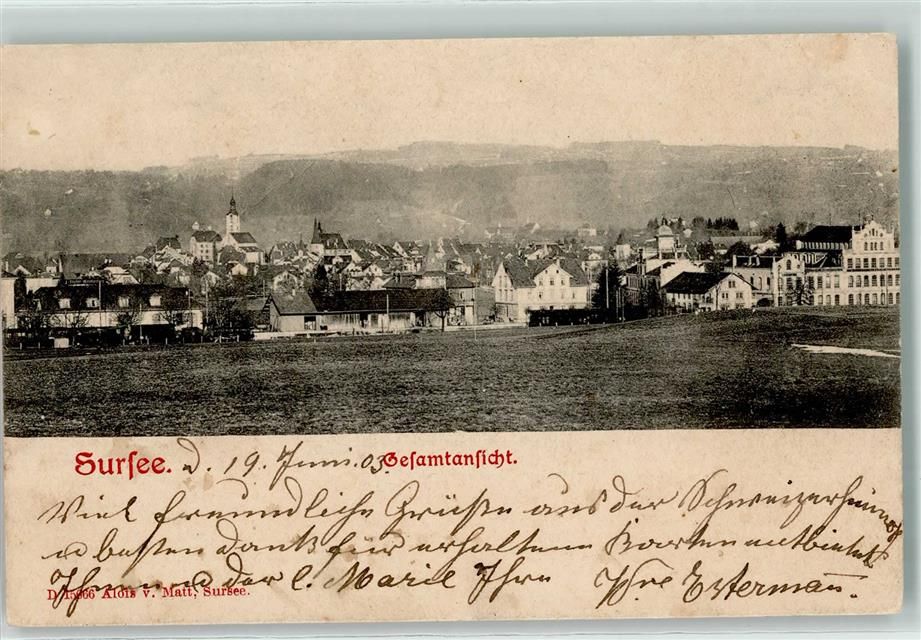 Sursee. d. 19. Juni. 03. Gesamtansicht.
Viele freundliche Grüße aus der Schweizerheimat
u besten Dank für erhaltene Karten entbietet
Ihnen und der l. Marie Ihre Estermann.
D 15666 Alois v. Matt, Sursee.